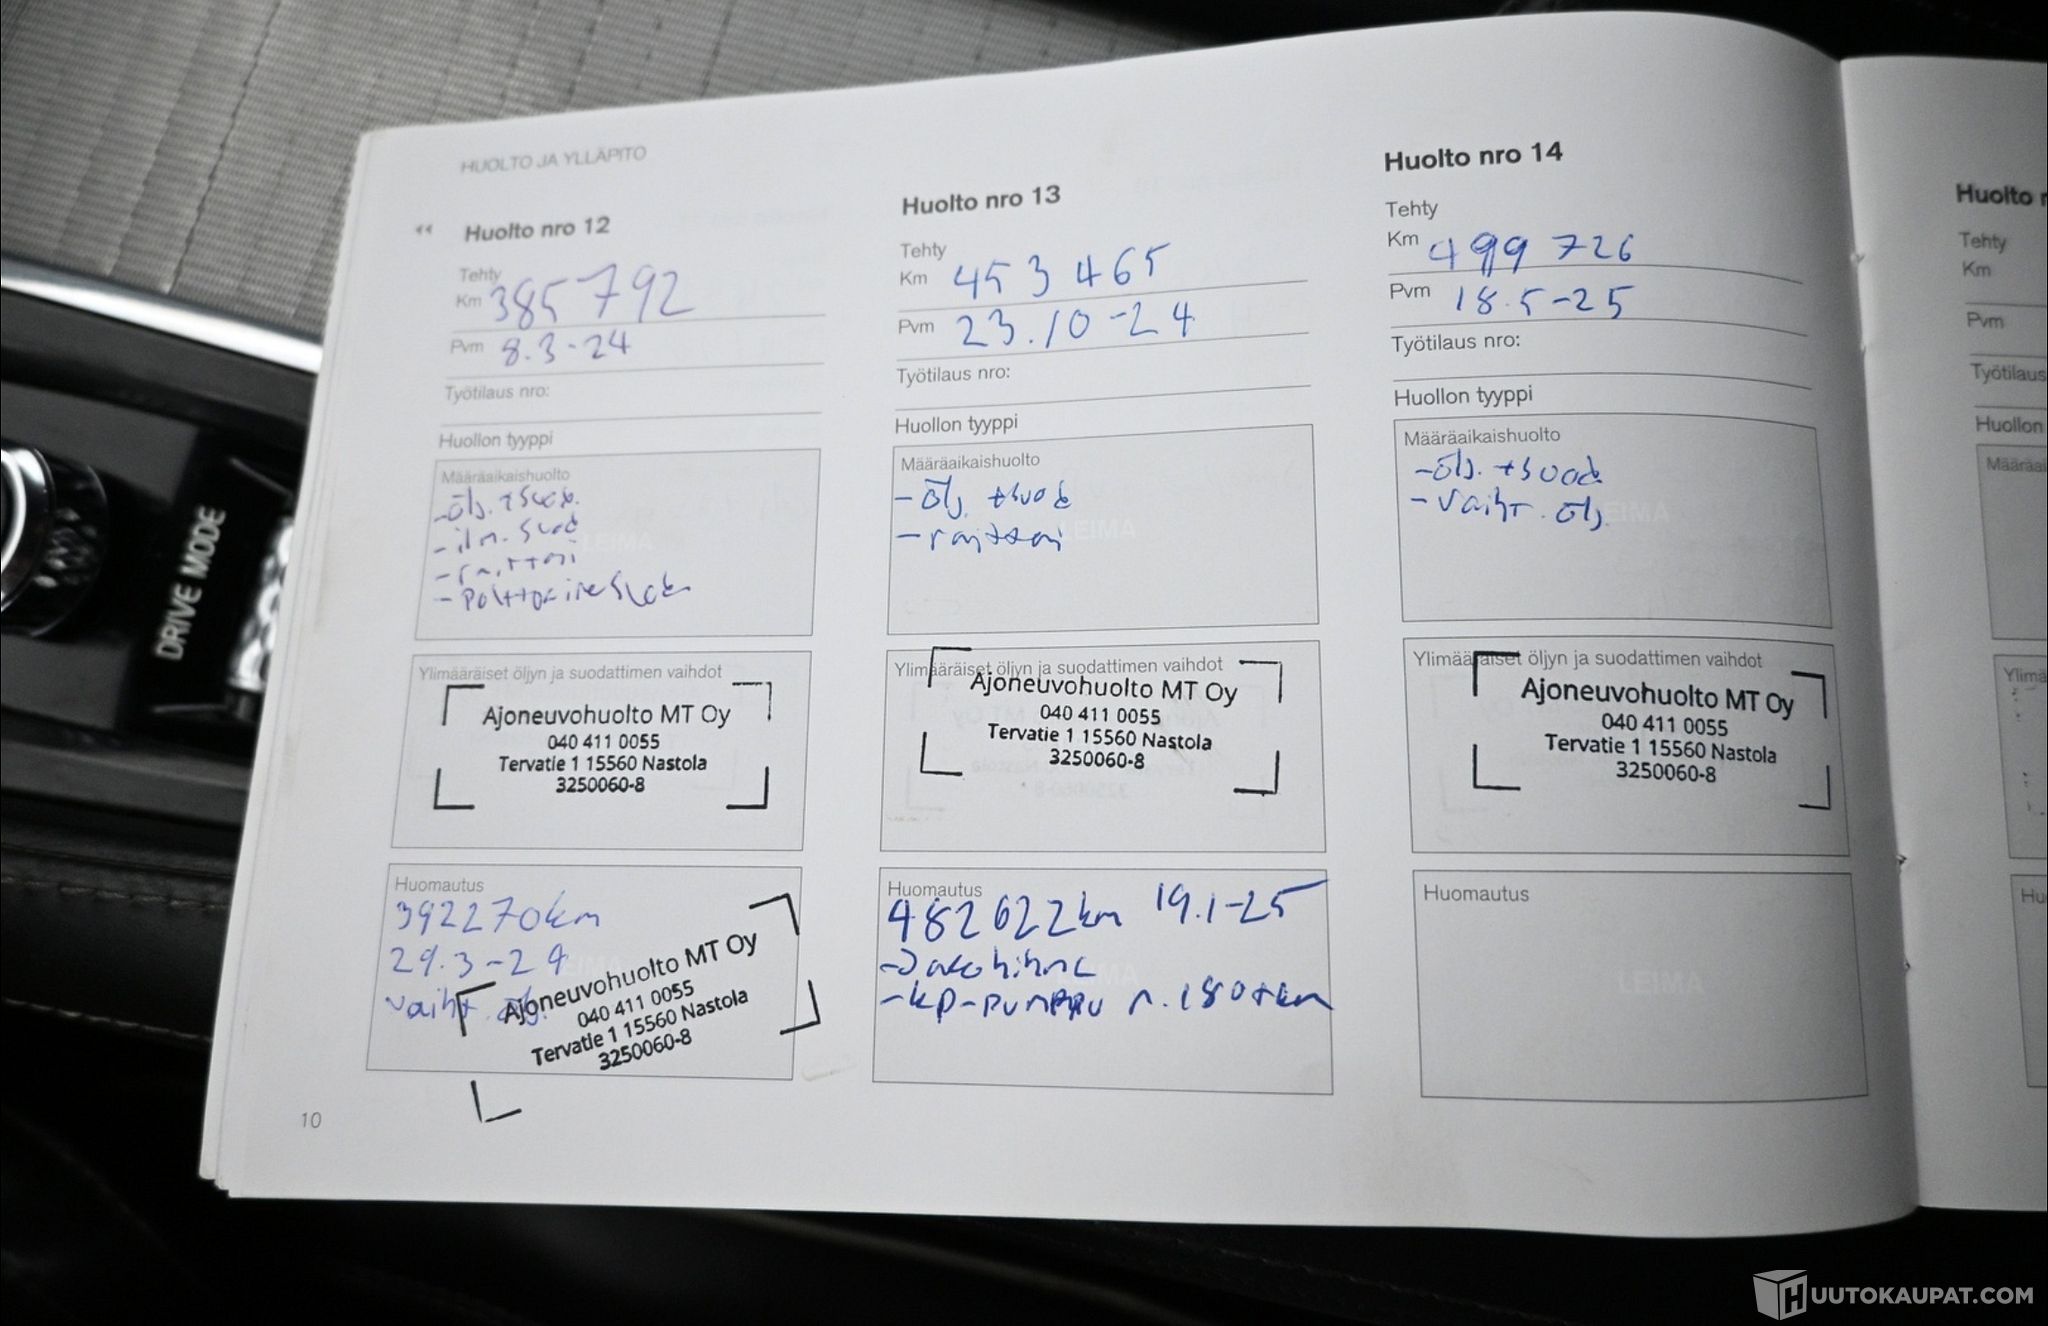 HUOLTO JA YLLÄPITO
Huolto nro 12
Tehty
Km 385792
Pvm 8.3-24
Työtilaus nro:
Huollon tyyppi
Määräaikaishuolto
-ölj. +suod.
- ilm. suod
- raittoi
- Polttoainesuod
Ylimääräiset öljyn ja suodattimen vaihdot
Ajoneuvohuolto MT Oy
040 411 0055
Tervatie 1 15560 Nastola
3250060-8
Huomautus
392270km
29.3-24
vaiht. ölj.
Ajoneuvohuolto MT Oy
040 411 0055
Tervatie 1 15560 Nastola
3250060-8
10
Huolto nro 13
Tehty
Km 453 465
Pvm 23.10-24
Työtilaus nro:
Huollon tyyppi
Määräaikaishuolto
LEIMA
- ölj. +suod
- raittoi
Ylimääräiset öljyn ja suodattimen vaihdot
Ajoneuvohuolto MT Oy
040 411 0055
Tervatie 1 15560 Nastola
3250060-8
Huomautus
482622km 19.1-25
-Jakohihna
-kp-pumppu n. 180tkm
Huolto nro 14
Tehty
Km 499 726
Pvm 18.5-25
Työtilaus nro:
Huollon tyyppi
Määräaikaishuolto
LEIMA
-ölj. +suod.
- vaiht. ölj.
Ylimääräiset öljyn ja suodattimen vaihdot
Ajoneuvohuolto MT Oy
040 411 0055
Tervatie 1 15560 Nastola
3250060-8
Huomautus
LEIMA
Huolto
Tehty
Km
Pvm
Työtilaus
Huollon
DRIVE MODE
HUUTOKAUPAT.COM